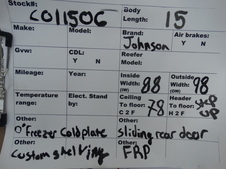 Stock#: C011506 Body Length: 15
Make: Model: Brand: Johnson Air brakes? Y N
Gvw: CDL: Y N Reefer Model:
Mileage: Year: Inside Width: (IW) 88 Outside Width: (OW) 98
Temperature range: Elect. Stand by: Ceiling To floor: C 2 F 78 Header To floor: H 2 F step up
Other: 0° Freezer coldplate Other: sliding rear door
Other: custom shelving Other: FRP